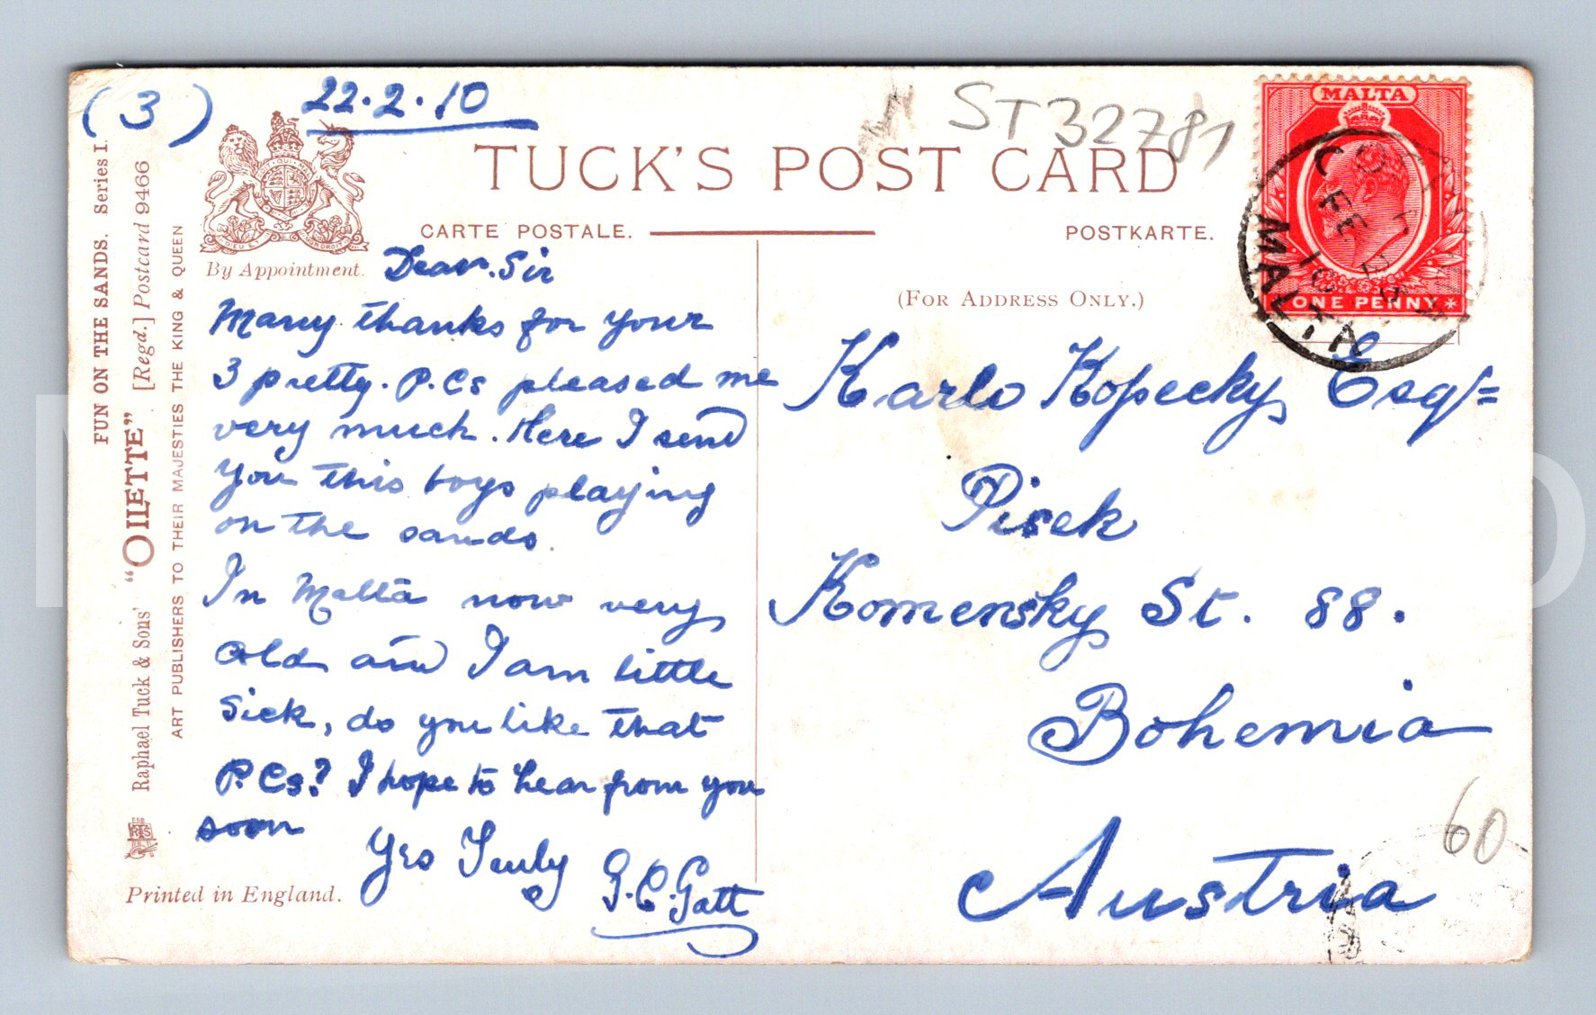 (3)
22.2.10
ST32781
TUCK'S POST CARD
CARTE POSTALE.
POSTKARTE.
By Appointment.
(For Address Only.)
MALTA
ONE PENNY
MALTA
FE
10
FUN ON THE SANDS. Series I.
Raphael Tuck & Sons' "OILETTE" [Regd.] Postcard 9466
ART PUBLISHERS TO THEIR MAJESTIES THE KING & QUEEN
Dear Sir
Many thanks for your
3 pretty. P.Cs pleased me
very much. Here I send
you this boys playing
on the sands.
In Malta now very
cold and I am little
sick, do you like that
P.Cs? I hope to hear from you
soon
Yrs Truly
G.C.Gatt
Printed in England.
Karlo Kopecky Esqr
Pisek
Komensky St. 88.
Bohemia
Austria
60